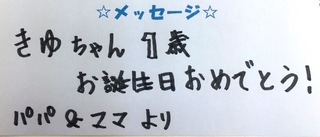 ☆メッセージ☆
きゆちゃん 1歳
お誕生日おめでとう!
パパ&ママ より